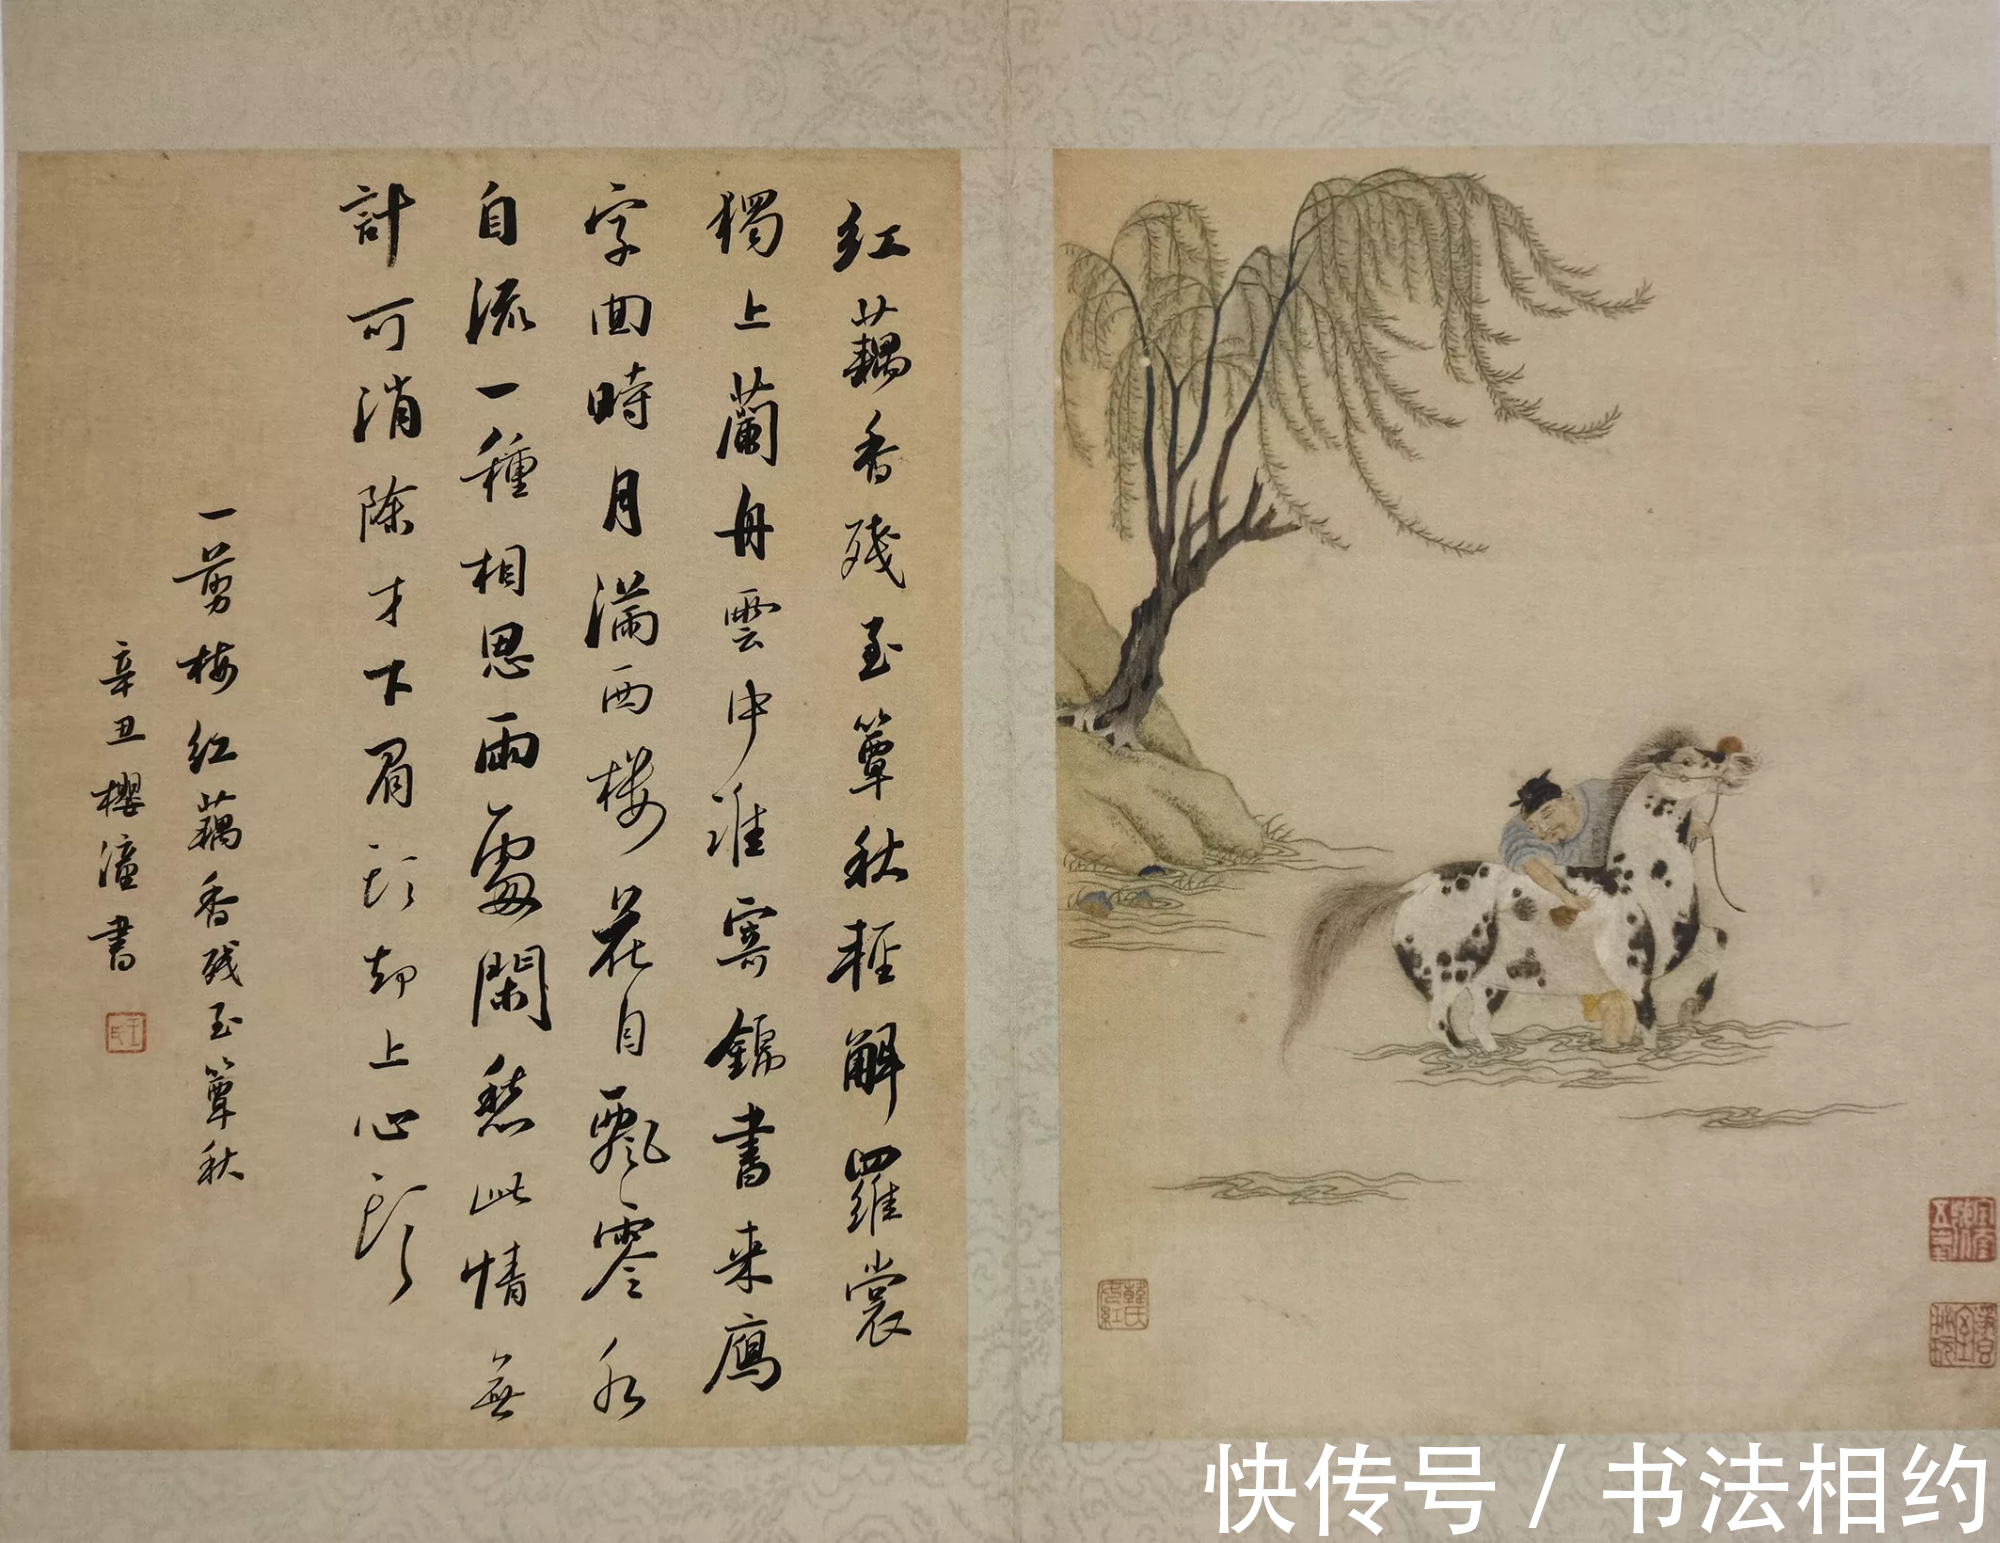 紅藕香殘玉簟秋輕解羅裳
獨上蘭舟雲中誰寄錦書來鴈
字回時月滿西楼花自飄零水
自流一種相思兩處閑愁此情無
計可消除才下眉頭却上心頭
一剪梅紅藕香殘玉簟秋
辛丑櫻潼書
王氏
韓氏
快传号 / 书法相约